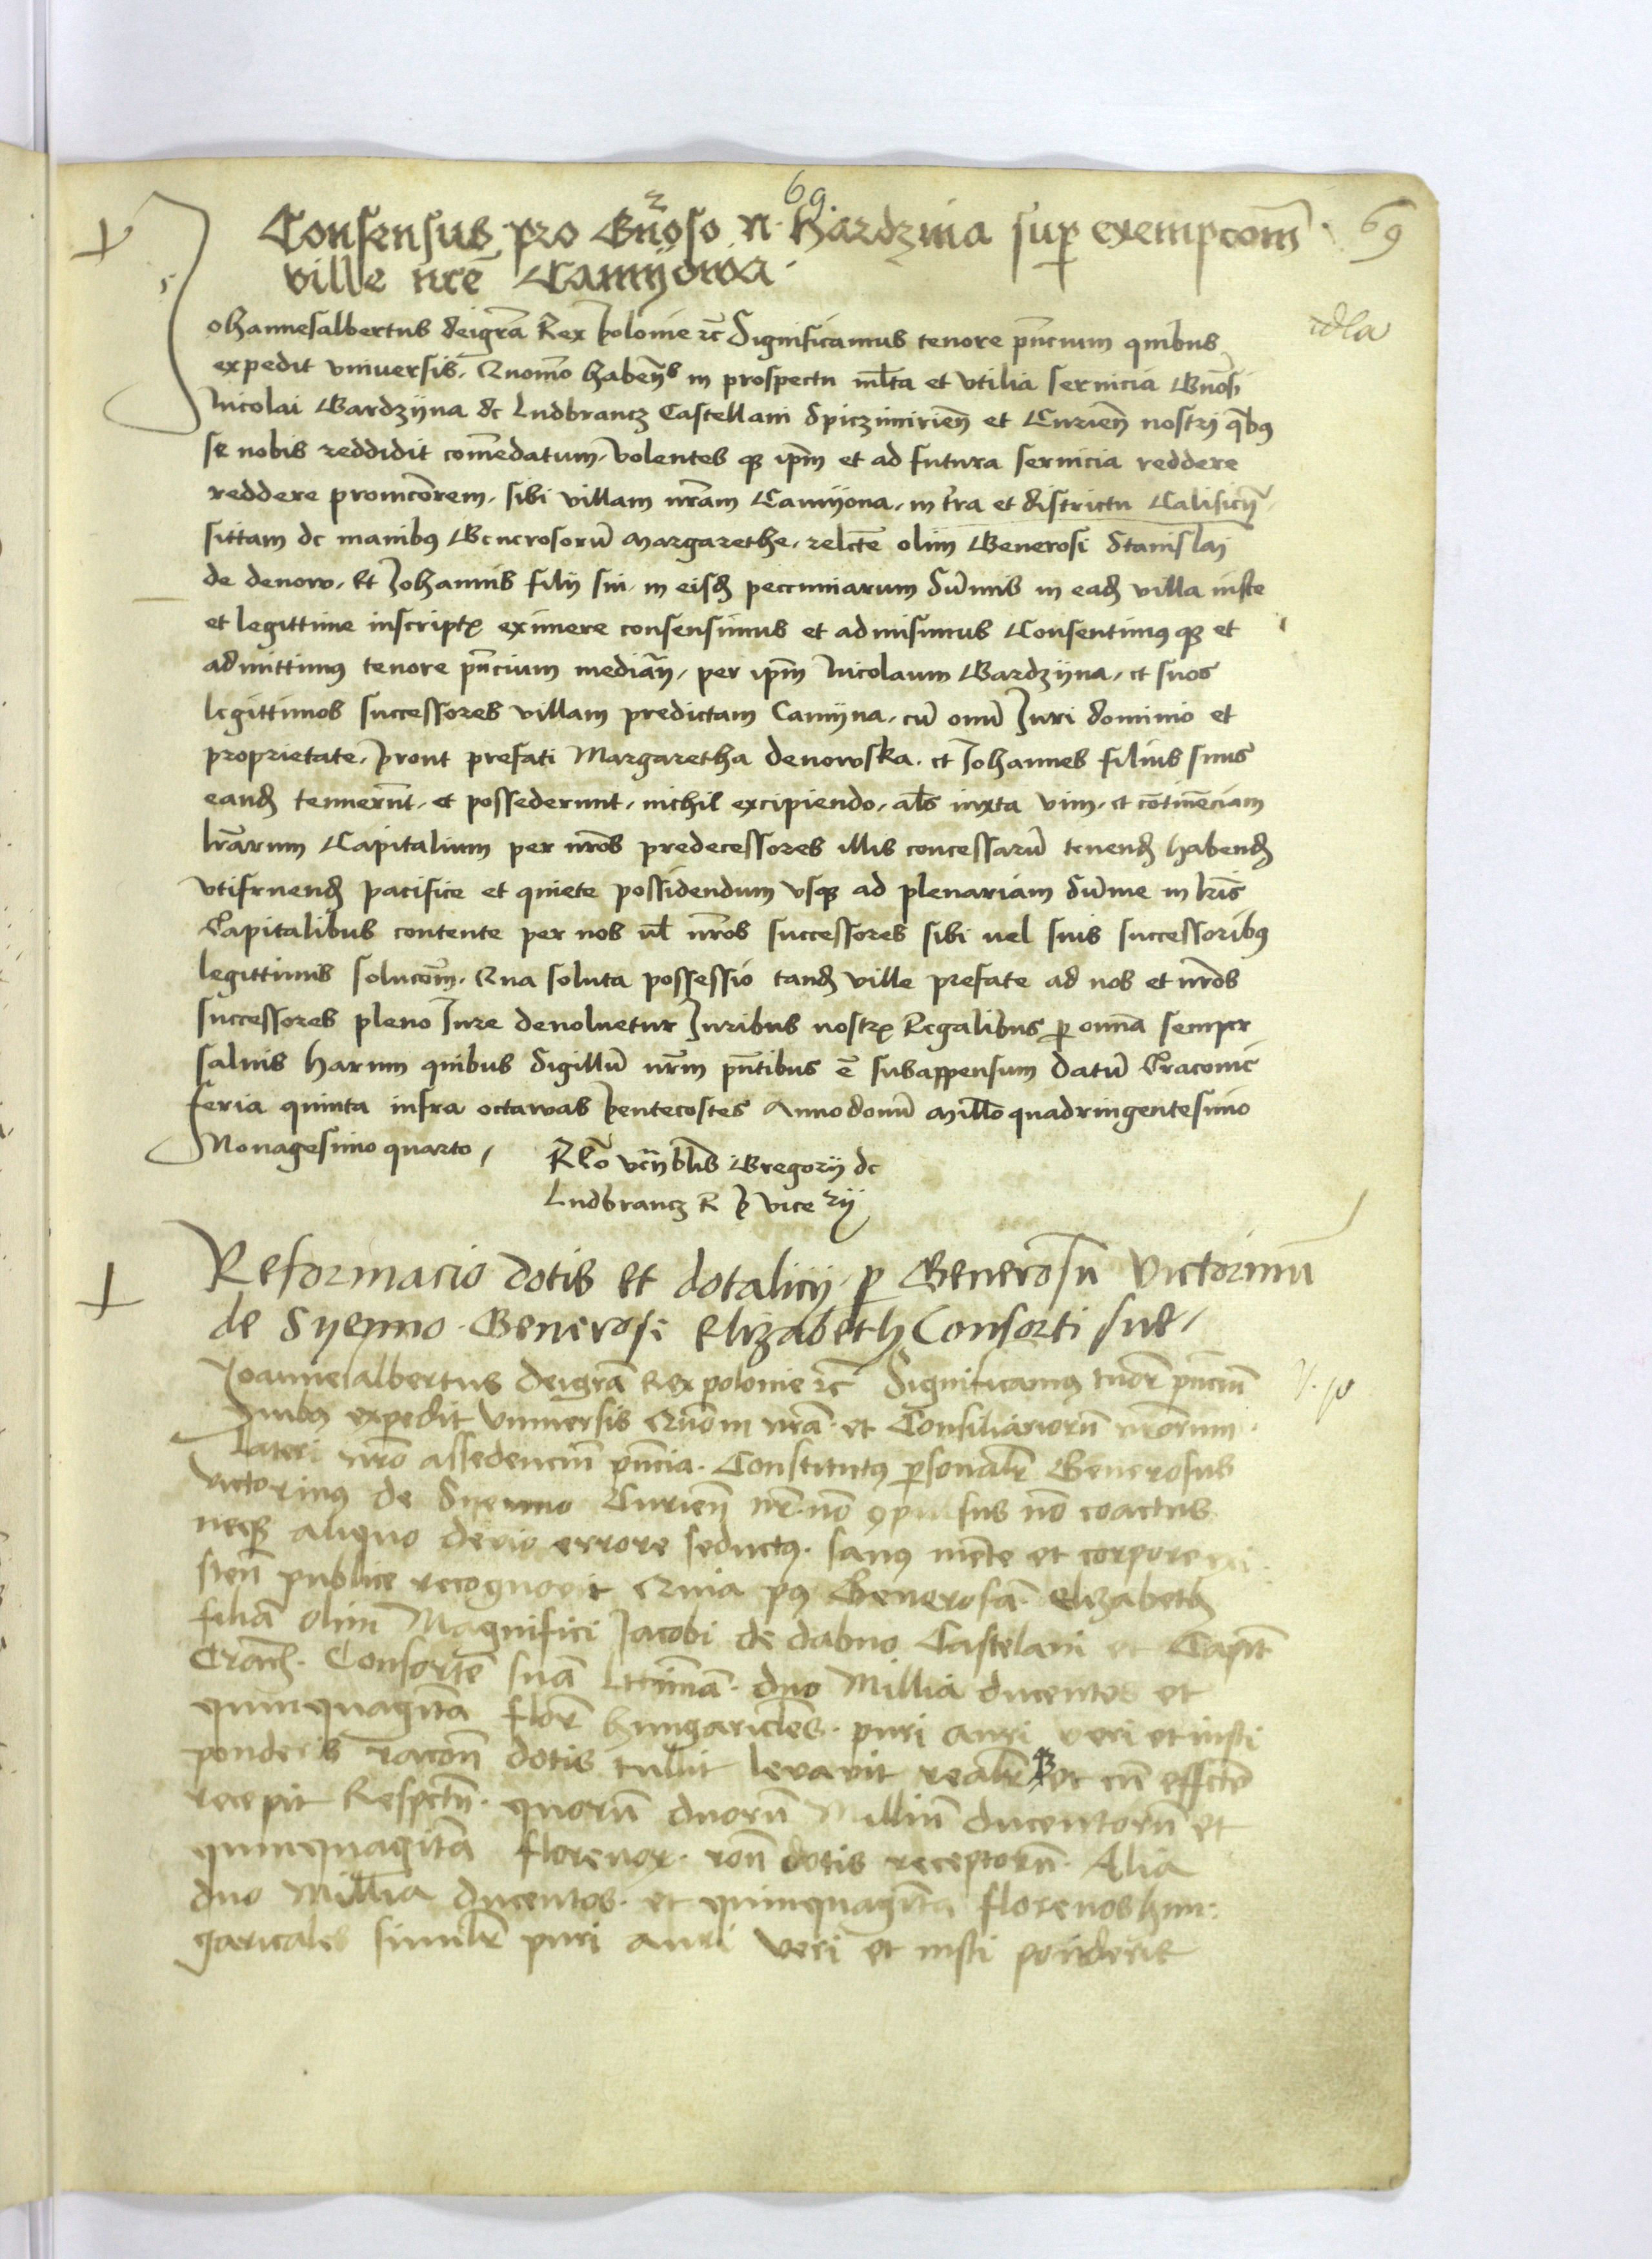 69.
69
Consensus pro Gnoso N. Wardzina sup exempcom
ville nre Camyona
Johannesalbertus deigra Rex polonie rc Significamus tenore pncium quibus
expedit vniuersis. Quomo habentes in prospectu mlta et vtilia seruicia Gnosi
Nicolai Wardzyna de Ludbrancz Castellani Spiczimirien et Curien nostrj qbus
se nobis reddidit comedatum. Volentes qz ipm et ad futura seruicia reddere
reddere promciorem. sibi villam nram Camyona. in tra et districtu Calisien
sittam de manibus Generosoru Margarethe. relcte olim Generosi Stanislaj
de denow. Et Johannis filij sui in eisd peccuniarum Sumis in ead villa iuste
et legittime inscriptis eximere consensimus et admisimus Consentimus qz et
admittimus tenore pncium median. per ipm Nicolaum Wardzyna. et suos
legittimos successores villam predictam Camyna. cu omi Juri dominio et
proprietate. prout prefati Margaretha denowska. et Johannes filius suus
eand tenuerut. et possederunt. nichil excipiendo. als iuxta vim. et cotineciam
lrarum Capitalium per nros predecessores illis concessaru tenend habend
vtifruend pacifice et quiete possidendum vsqz ad plenariam Sume in lris
Capitalibus contente per nos ul nros successores sibi uel suis successoribus
legittimis solucom. Qua soluta possessio tand ville prefate ad nos et nros
successores pleno Jure deuoluetur Juribus nostris Regalibus p omia semper
saluis harum quibus Sigillu nrm pntibus e subappensum datu Cracouie
feria quinta infra octawas pentecostes Anno domi Millo quadringentesimo
Nonagesimo quarto
Rlo venblis Gregorij de
Ludbrancz R p vice rij
Reformacio dotis et dotalicij p Generosu Victorinu
de Syenno Generose Elizabeth Consorti sue
Joannesalbertus deigra Rex polonie rc Significamus tenor pncium
Quibus expedit vniuersis Quom nra et Consiliarioru nrorum
lateri nro assedenciu pncia. Constitutus psonalr Generosus
victorinus de Syenno Curien nr. no 9pulsus no coactus
necqz aliquo deuio errore seductus. sanus mente et corpore exi
sten publice recognouit Quia post Generosa Elizabeth
filia olim Magnifici Jacobi de dabno Castelani et Capit
Crach. Consorte sua lttima. duo Millia ducentos et
quinquaginta flor hungaricales. puri auri veri et iusti
ponderis racon dotis tullit leuauit realr et cu effectu
recepit Respectu. quoru duoru Milliu ducentoru et
quinquaginta florenor. ron dotis receptoru. Alia
duo Millia ducentos et quinquaginta florenos hun
garicales similr puri auri veri et iusti ponderis